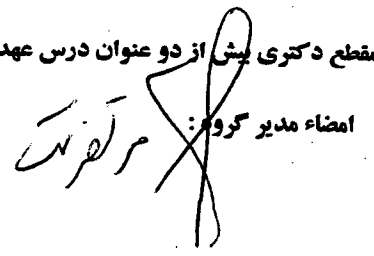 مقطع دکتری بیش از دو عنوان درس عهد
امضاء مدیر گروه :